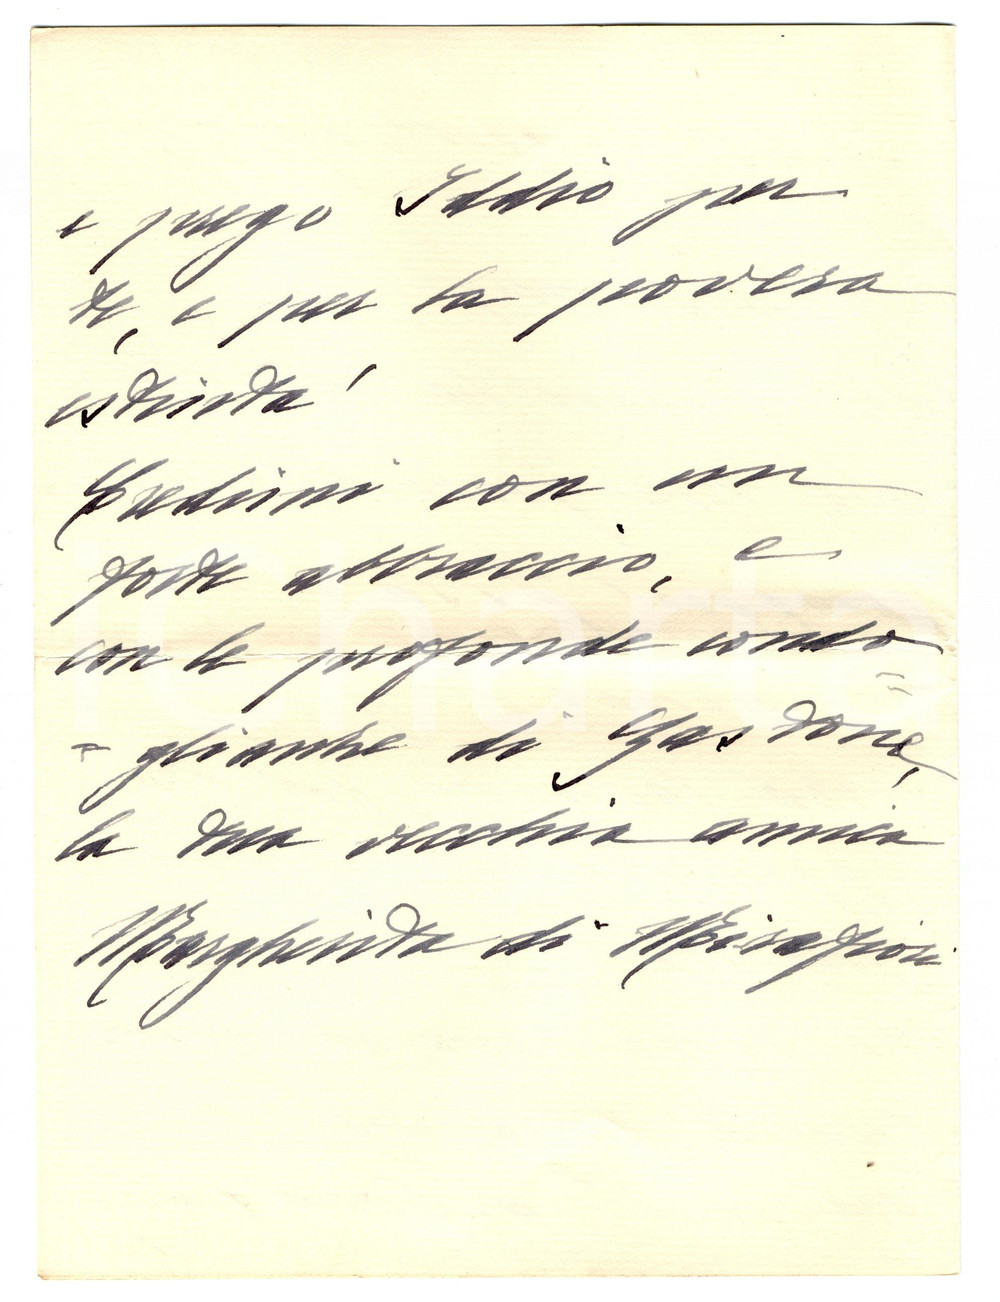 e prego Iddio per
te, e per la povera
estinta!
Credimi con un
forte abbraccio, e
con le profonde condo=
=glianze di Gastone,
la tua vecchia amica
Margherita di Mirafiori
iCharta